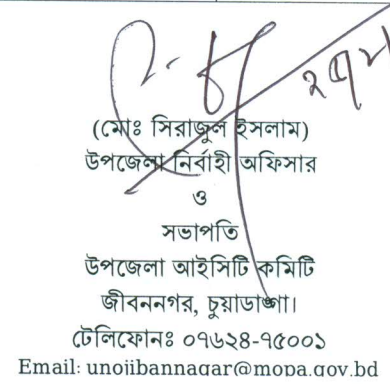 (মোঃ সিরাজুল ইসলাম)
উপজেলা নির্বাহী অফিসার
ও
সভাপতি
উপজেলা আইসিটি কমিটি
জীবননগর, চুয়াডাঙ্গা।
টেলিফোনঃ ০৭৬২৪-৭৫০০১
Email: unojibannagar@mopa.gov.bd